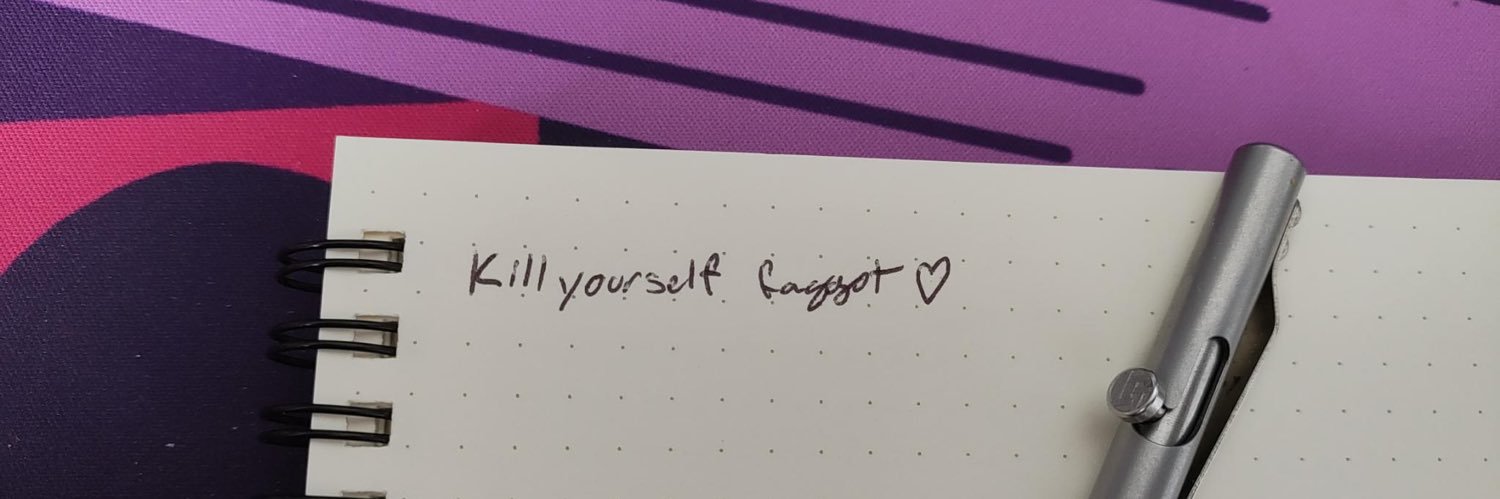 Kill yourself faggot ♡